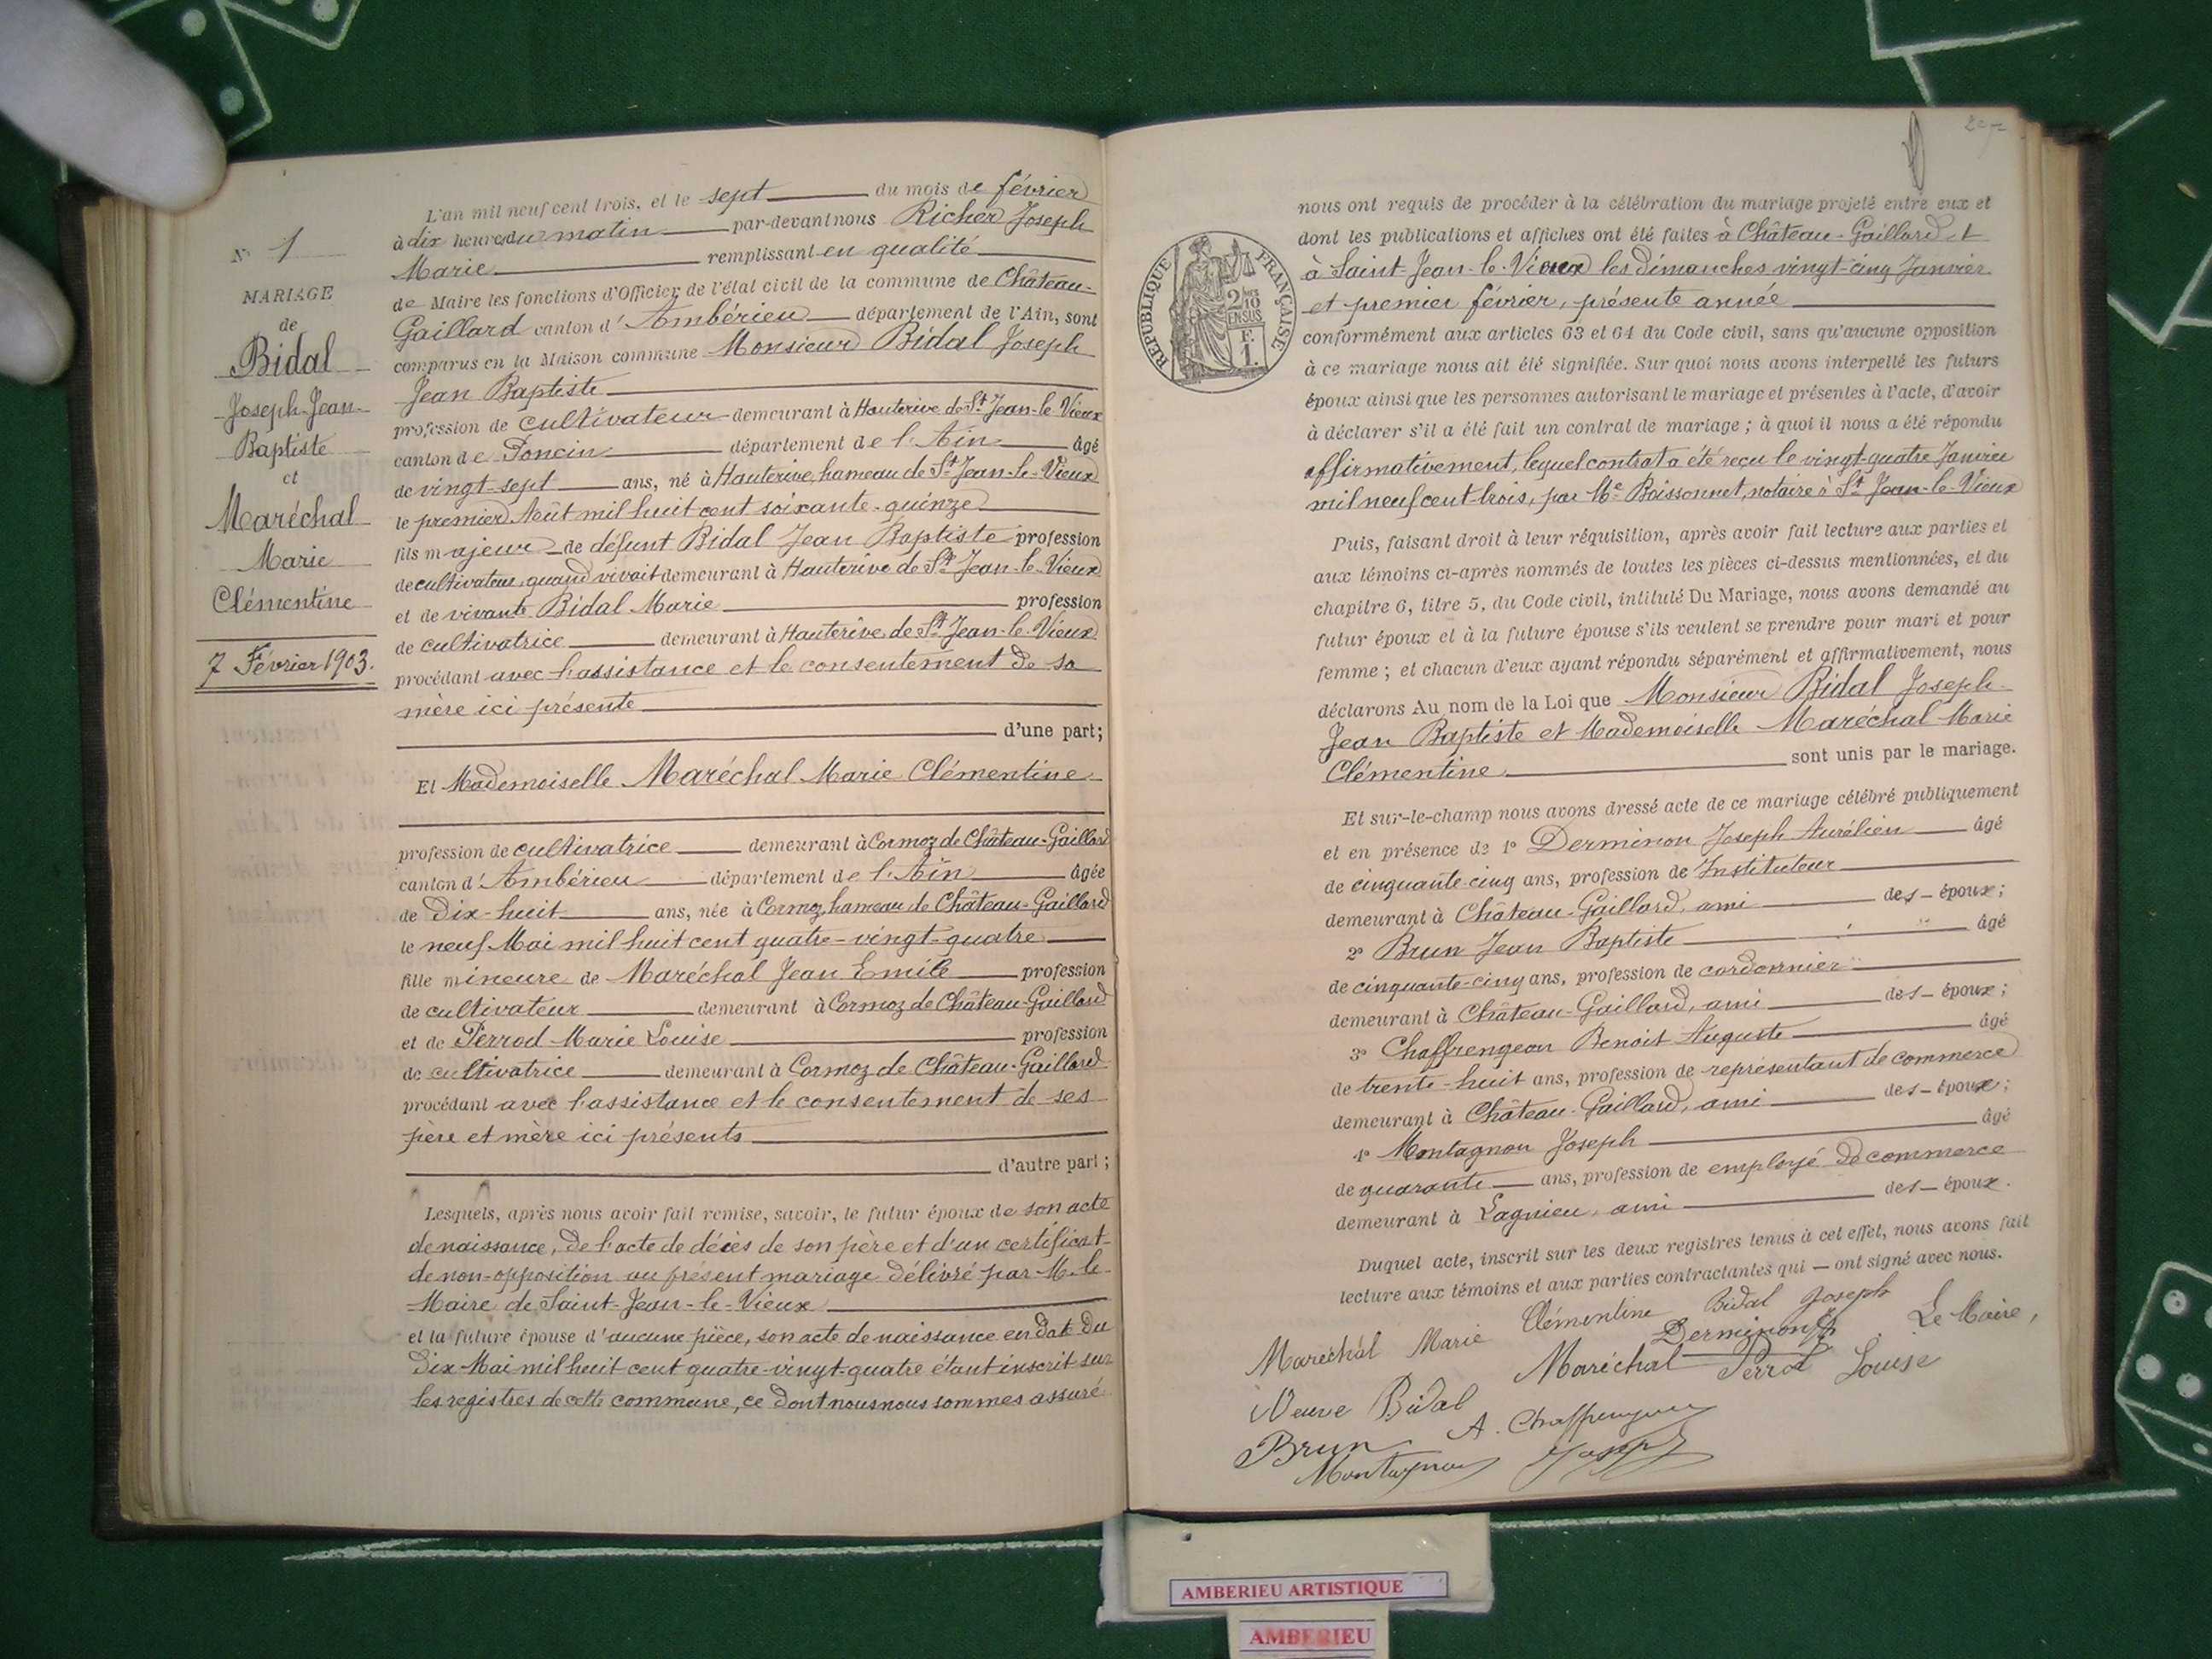 N° 1
MARIAGE
de
Bidal
Joseph-Jean-
Baptiste
et
Maréchal
Marie
Clémentine
7 Février 1903.
L'an mil neuf cent trois, et le sept du mois de février
à dix heures du matin par-devant nous Richer Joseph
Marie remplissant en qualité
de Maire les fonctions d'Officier de l'état civil de la commune de Château-
Gaillard canton d'Ambérieu département de l'Ain, sont
comparus en la Maison commune Monsieur Bidal Joseph
Jean Baptiste
profession de cultivateur demeurant à Hauterive de St Jean-le-Vieux
canton de Poncin département de l'Ain âgé
de vingt-sept ans, né à Hauterive, hameau de St Jean-le-Vieux
le premier Août mil huit cent soixante-quinze
fils majeur de défunt Bidal Jean Baptiste profession
de cultivateur, quand vivait demeurant à Hauterive de St Jean-le-Vieux
et de vivante Bidal Marie profession
de cultivatrice demeurant à Hauterive de St Jean-le-Vieux
procédant avec l'assistance et le consentement de sa
mère ici présente
d'une part;
Et Mademoiselle Maréchal Marie Clémentine
profession de cultivatrice demeurant à Cormoz de Château-Gaillard
canton d'Ambérieu département de l'Ain âgée
de Dix-huit ans, née à Cormoz, hameau de Château-Gaillard
le neuf Mai mil huit cent quatre-vingt-quatre
fille mineure de Maréchal Jean Emile profession
de cultivateur demeurant à Cormoz de Château-Gaillard
et de Perrod Marie Louise profession
de cultivatrice demeurant à Cormoz de Château-Gaillard
procédant avec l'assistance et le consentement de ses
père et mère ici présents
d'autre part;
Lesquels, après nous avoir fait remise, savoir, le futur époux de son acte
de naissance, de l'acte de décès de son père et d'un certificat
de non-opposition au présent mariage délivré par M. le
Maire de Saint-Jean-le-Vieux
et la future épouse d'aucune pièce, son acte de naissance en date du
dix Mai mil huit cent quatre-vingt-quatre étant inscrit sur
les registres de cette commune, ce dont nous nous sommes assuré
RÉPUBLIQUE FRANÇAISE
2/10
EN SUS
F.
1.
nous ont requis de procéder à la célébration du mariage projeté entre eux et
dont les publications et affiches ont été faites à Château-Gaillard et
à Saint-Jean-le-Vieux les dimanches vingt-cinq Janvier
et premier février, présente année
conformément aux articles 63 et 64 du Code civil, sans qu'aucune opposition
à ce mariage nous ait été signifiée. Sur quoi nous avons interpellé les futurs
époux ainsi que les personnes autorisant le mariage et présentes à l'acte, d'avoir
à déclarer s'il a été fait un contrat de mariage; à quoi il nous a été répondu
affirmativement, lequel contrat a été reçu le vingt-quatre Janvier
mil neuf cent trois, par Me Boissonnet, notaire à St Jean-le-Vieux
Puis, faisant droit à leur réquisition, après avoir fait lecture aux parties et
aux témoins ci-après nommés de toutes les pièces ci-dessus mentionnées, et du
chapitre 6, titre 5, du Code civil, intitulé Du Mariage, nous avons demandé au
futur époux et à la future épouse s'ils veulent se prendre pour mari et pour
femme; et chacun d'eux ayant répondu séparément et affirmativement, nous
déclarons Au nom de la Loi que Monsieur Bidal Joseph
Jean Baptiste et Mademoiselle Maréchal Marie
Clémentine sont unis par le mariage.
Et sur-le-champ nous avons dressé acte de ce mariage célébré publiquement
et en présence de 1° Derminon Joseph Aurélien âgé
de cinquante-cinq ans, profession de Instituteur
demeurant à Château-Gaillard, ami des époux;
2° Brun Jean Baptiste âgé
de cinquante-cinq ans, profession de cordonnier
demeurant à Château-Gaillard, ami des époux;
3° Chaffrengeon Benoit Auguste âgé
de trente-huit ans, profession de représentant de commerce
demeurant à Château-Gaillard, ami des époux;
4° Montagnon Joseph âgé
de quarante ans, profession de employé de commerce
demeurant à Lagnieu, ami des époux.
Duquel acte, inscrit sur les deux registres tenus à cet effet, nous avons fait
lecture aux témoins et aux parties contractantes qui — ont signé avec nous.
Maréchal Marie Clémentine Bidal Joseph
Derminon Le Maire,
Veuve Bidal Maréchal Perrod Louise
Brun A. Chaffrengeon
Montagnon
AMBERIEU ARTISTIQUE
AMBERIEU